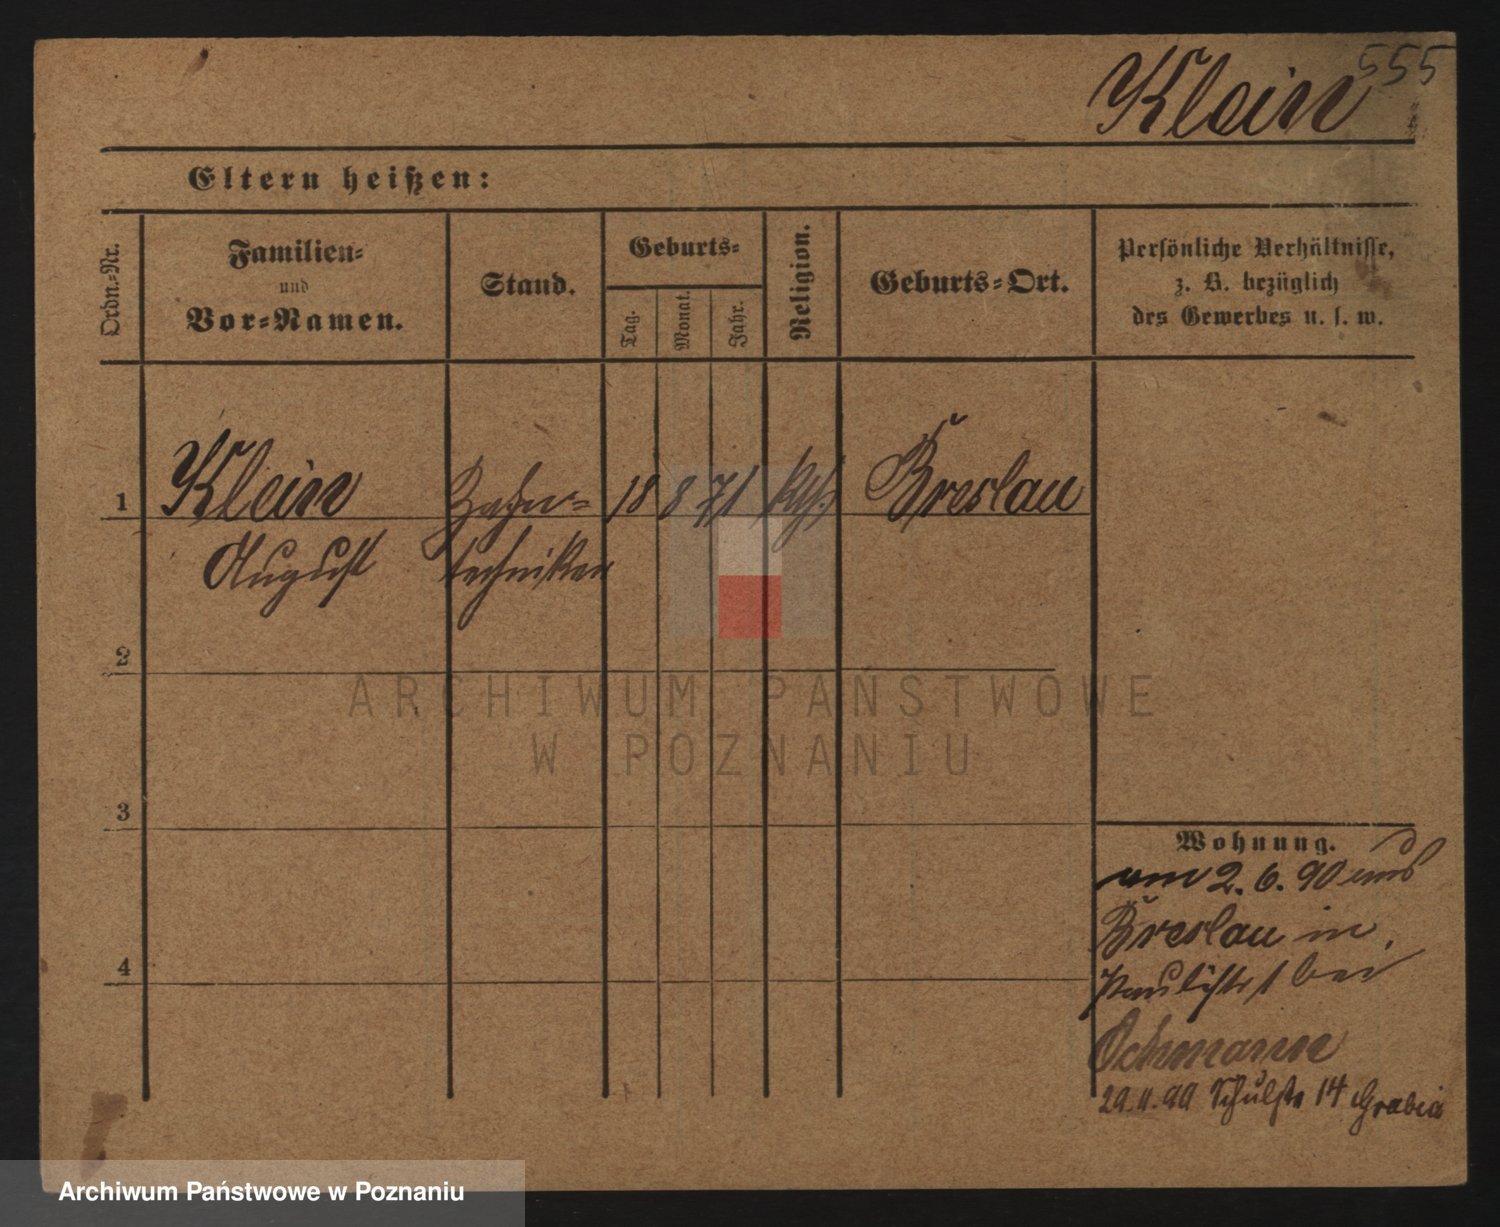 555
Klein
Eltern heißen:
Ordn.-Nr.
Familien-
und
Vor-Namen.
Stand.
Geburts-
Tag.
Monat.
Jahr.
Religion.
Geburts-Ort.
Persönliche Verhältnisse,
z. B. bezüglich
des Gewerbes u. s. w.
1 Klein Zahn- 18 8 71 kth. Breslau
August techniker
2
3
4
Wohnung.
am 2. 6. 90 aus
Breslau in
Paulistr 1 bei
Ochmann
Schulstr 14 Grabia
ARCHIWUM PAŃSTWOWE
W POZNANIU
Archiwum Państwowe w Poznaniu